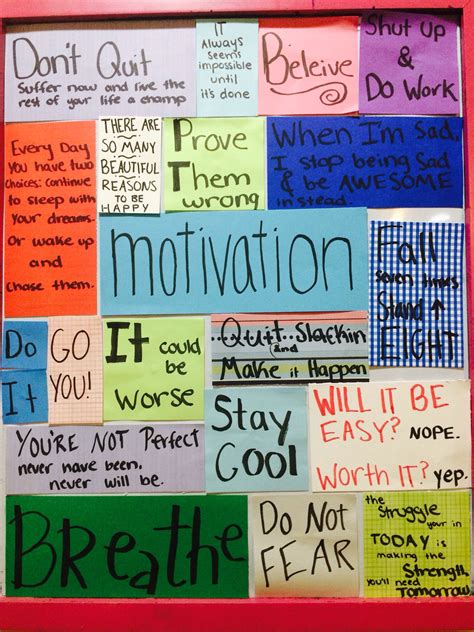 Don't Quit
Suffer now and live the
rest of your life a champ
IT
Always
seems
impossible
until
it's done
Beleive
Shut Up
&
Do Work
Every Day
you have two
choices: Continue
to sleep with
your dreams.
Or wake up
and
chase them.
THERE ARE
SO MANY
BEAUTIFUL
REASONS
TO BE
HAPPY
Prove
Them
wrong
When I'm Sad,
I stop being Sad
& be AWESOME
instead.
motivation
Fall
seven times
Stand ↑
EIGHT
Do
It
GO
YOU!
It could
be
Worse
..Quit..Slackin
(and)
Make it Happen
Stay
Cool
WILL IT BE
EASY? NOPE.
Worth IT? yep.
YOU'RE NOT Perfect
never have been,
never will be.
BReathe
Do Not
FEAR
the
Struggle
your in
TODAY is
making the
Strength
you'll need
Tomorrow